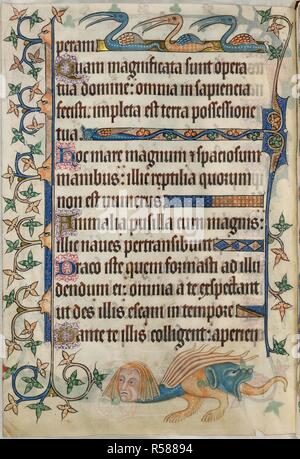 perant
Quam magnificata sunt opera
tua domine: omnia in sapiencia
fecisti: impleta est terra possessione
tua
Hoc mare magnum & spaciosum
manibus: illic reptilia quorum
non est numerus
Animalia pusilla cum magnis:
illic naues pertransibunt
Draco iste quem formasti ad illu
dendum ei: omnia a te expectant
ut des illis escam in tempore
Dante te illis colligent: aperien
alamy
Image ID: R58894
www.alamy.com